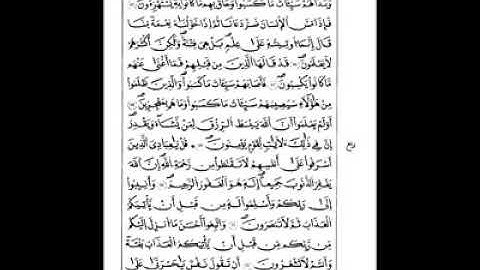 وَبَدَا لَهُمْ سَيِّئَاتُ مَا كَسَبُوا وَحَاقَ بِهِم مَّا كَانُوا بِهِ يَسْتَهْزِءُونَ
فَإِذَا مَسَّ الْإِنسَانَ ضُرٌّ دَعَانَا ثُمَّ إِذَا خَوَّلْنَاهُ نِعْمَةً مِّنَّا
قَالَ إِنَّمَا أُوتِيتُهُ عَلَىٰ عِلْمٍ بَلْ هِيَ فِتْنَةٌ وَلَٰكِنَّ أَكْثَرَهُمْ
لَا يَعْلَمُونَ قَدْ قَالَهَا الَّذِينَ مِن قَبْلِهِمْ فَمَا أَغْنَىٰ عَنْهُم
مَّا كَانُوا يَكْسِبُونَ فَأَصَابَهُمْ سَيِّئَاتُ مَا كَسَبُوا وَالَّذِينَ ظَلَمُوا
مِنْ هَٰؤُلَاءِ سَيُصِيبُهُمْ سَيِّئَاتُ مَا كَسَبُوا وَمَا هُم بِمُعْجِزِينَ
أَوَلَمْ يَعْلَمُوا أَنَّ اللَّهَ يَبْسُطُ الرِّزْقَ لِمَن يَشَاءُ وَيَقْدِرُ
إِنَّ فِي ذَٰلِكَ لَآيَاتٍ لِّقَوْمٍ يُؤْمِنُونَ قُلْ يَا عِبَادِيَ الَّذِينَ
أَسْرَفُوا عَلَىٰ أَنفُسِهِمْ لَا تَقْنَطُوا مِن رَّحْمَةِ اللَّهِ إِنَّ اللَّهَ
يَغْفِرُ الذُّنُوبَ جَمِيعًا إِنَّهُ هُوَ الْغَفُورُ الرَّحِيمُ وَأَنِيبُوا
إِلَىٰ رَبِّكُمْ وَأَسْلِمُوا لَهُ مِن قَبْلِ أَن يَأْتِيَكُمُ
الْعَذَابُ ثُمَّ لَا تُنصَرُونَ وَاتَّبِعُوا أَحْسَنَ مَا أُنزِلَ إِلَيْكُم
مِّن رَّبِّكُم مِّن قَبْلِ أَن يَأْتِيَكُمُ الْعَذَابُ بَغْتَةً
وَأَنتُمْ لَا تَشْعُرُونَ أَن تَقُولَ نَفْسٌ يَا حَسْرَتَىٰ عَلَىٰ